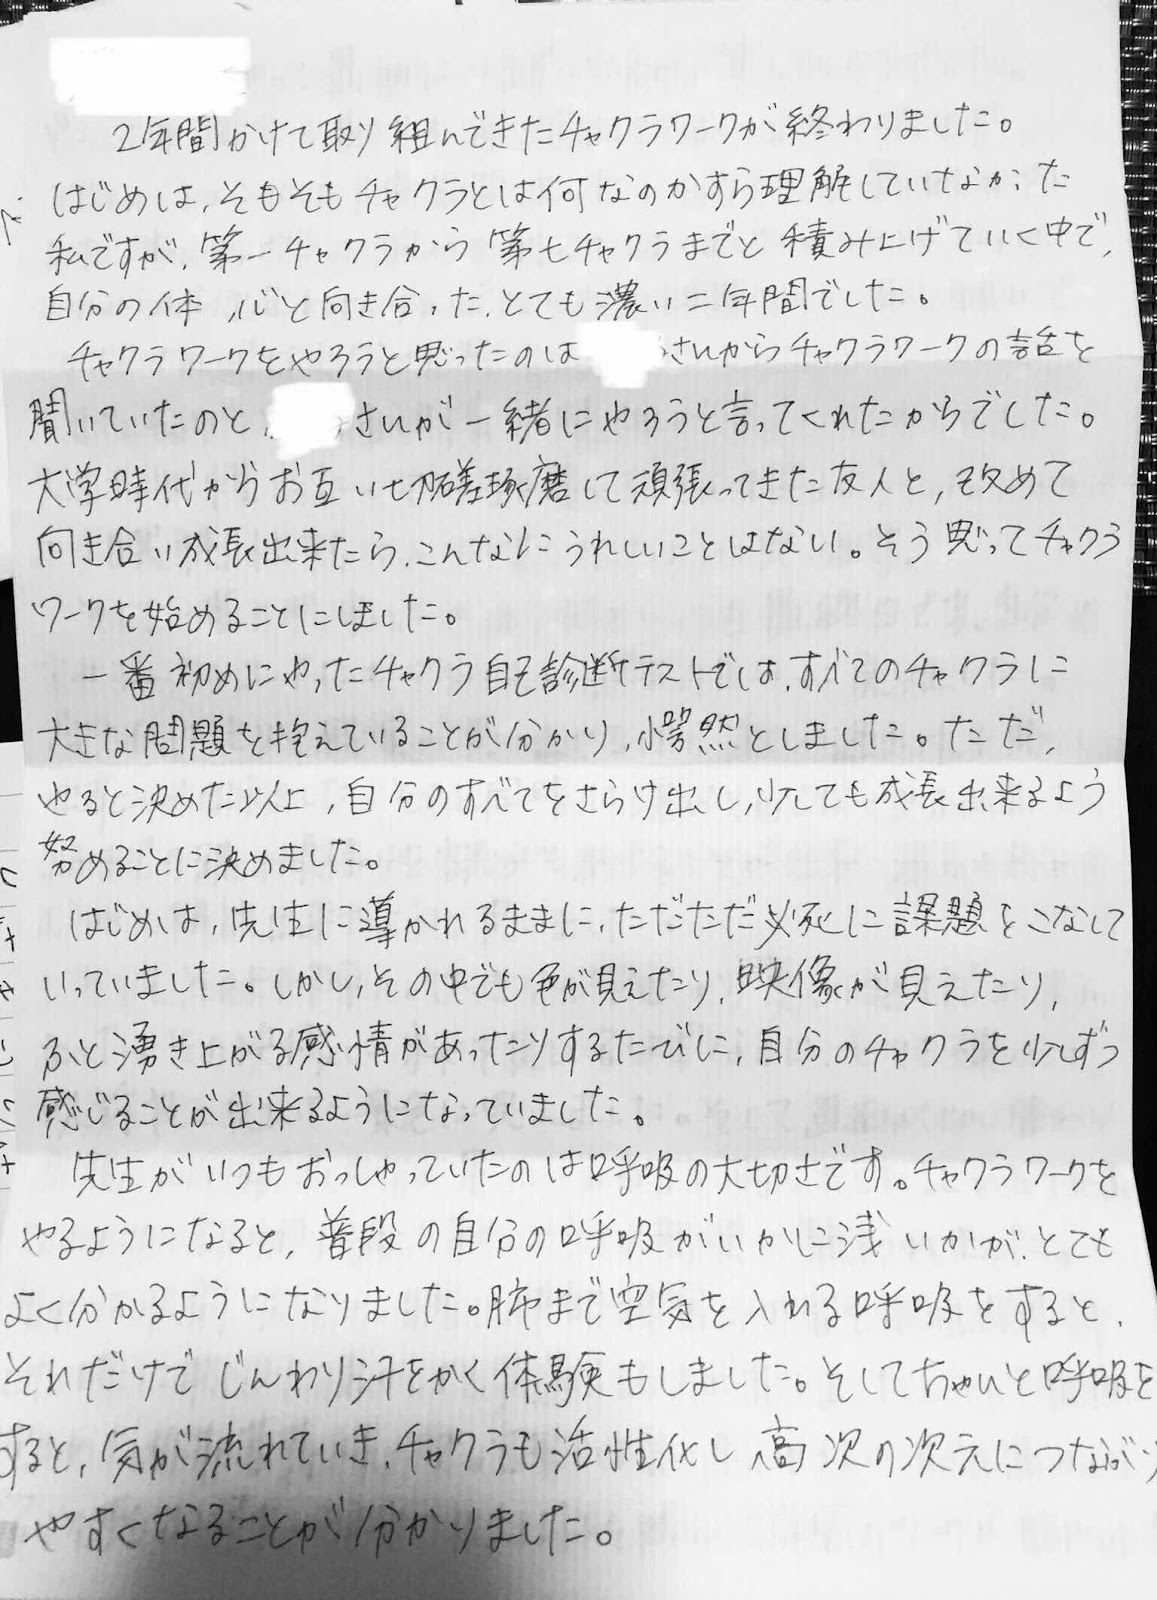 2年間かけて取り組んできたチャクラワークが終わりました。
はじめは、そもそもチャクラとは何なのかすら理解していなかった
私ですが、第一チャクラから第七チャクラまでと積み上げていく中で、
自分の体、心と向き合った、とても濃い二年間でした。
チャクラワークをやろうと思ったのは さんからチャクラワークの話を
聞いていたのと、 さんが一緒にやろうと言ってくれたからでした。
大学時代からお互い切磋琢磨して頑張ってきた友人と、改めて
向き合い成長出来たら、こんなにうれしいことはない。そう思ってチャクラ
ワークを始めることにしました。
一番初めにやったチャクラ自己診断テストでは、すべてのチャクラに
大きな問題を抱えていることが分かり、愕然としました。ただ、
やると決めた以上、自分のすべてをさらけ出し、少しでも成長出来るよう
努めることに決めました。
はじめは、先生に導かれるままに、ただただ必死に課題をこなして
いっていました。しかし、その中でも色が見えたり、映像が見えたり、
ふと湧き上がる感情があったりするたびに、自分のチャクラを少しずつ
感じることが出来るようになっていました。
先生がいつもおっしゃっていたのは呼吸の大切さです。チャクラワークを
やるようになると、普段の自分の呼吸がいかに浅いかが、とても
よく分かるようになりました。肺まで空気を入れる呼吸をすると、
それだけでじんわり汗をかく体験もしました。そしてちゃんと呼吸を
すると、気が流れていき、チャクラも活性化し高次の次元につながり
やすくなることが分かりました。